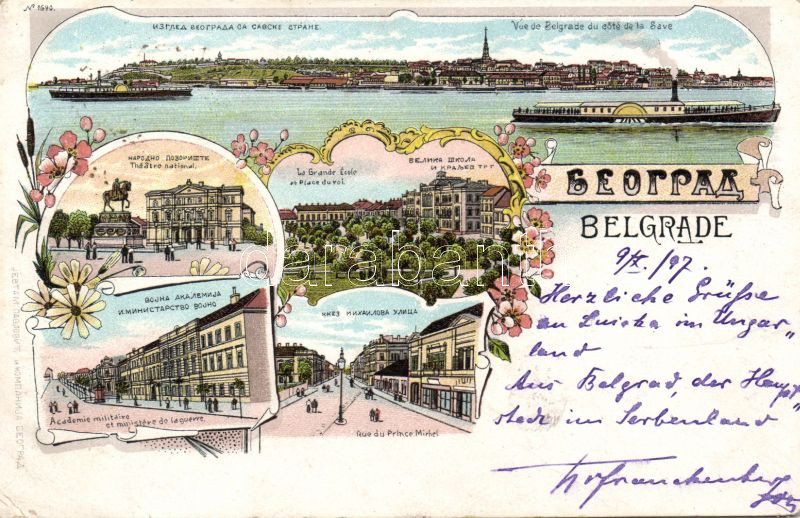 № 1640.
ИЗГЛЕД БЕОГРАДА СА САВСКЕ СТРАНЕ.
Vue de Belgrade du côté de la Save
НАРОДНО ПОЗОРИШТЕ
Théâtre national.
La Grande École
et Place du roi.
ВЕЛИКА ШКОЛА
И КРАЉЕВ ТРГ
БЕОГРАД
BELGRADE
9/X./97.
Herzliche Grüsse
an Luiska im Ungar„
land
Aus Belgrad, der Haupt„
stadt im Serbenland
Frankenberg
ВОЈНА АКАДЕМИЈА
И МИНИСТАРСТВО ВОЈНО
Academie militaire
et ministère de la guerre.
КНЕЗ МИХАИЛОВА УЛИЦА
Rue du Prince Michel
ЈЕВТА М. ПАВЛОВИЋ И КОМПАНИЈА БЕОГРАД
darabanth